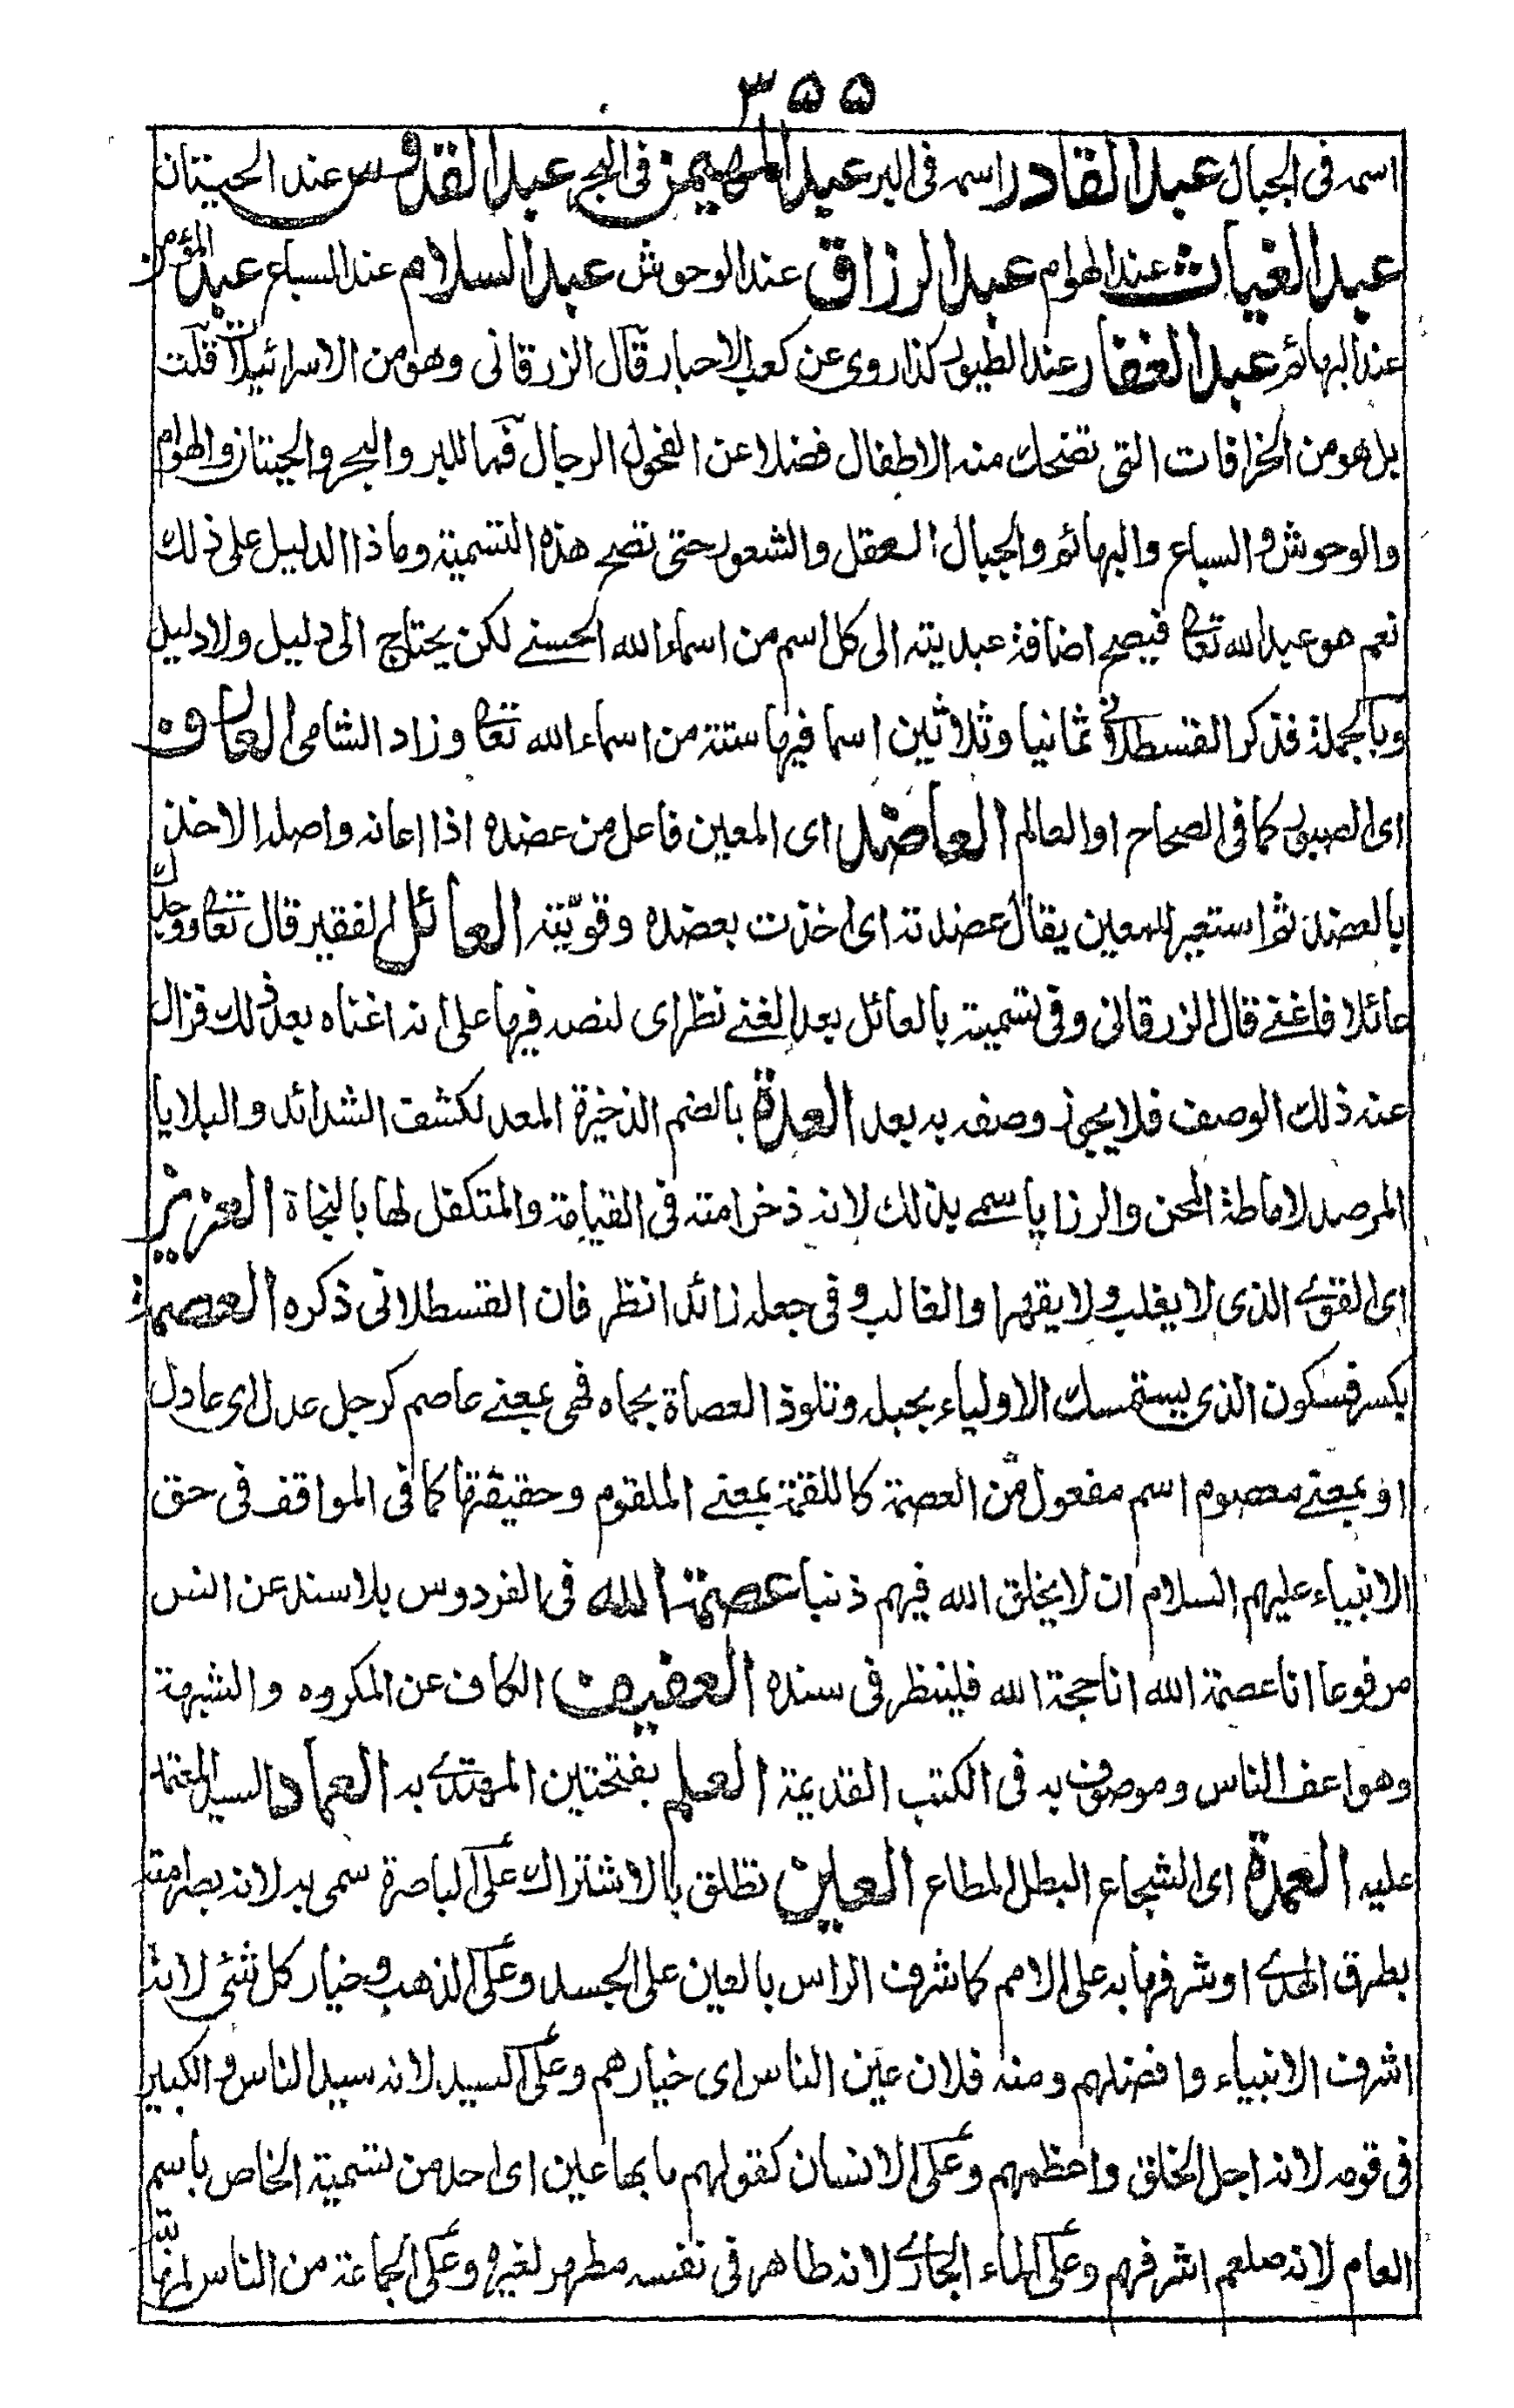 ٣٥٥
اسمه فى الجبال عبد القادر اسمه فى البر عبد المهيمن فى البحر عبد القدوس عند الحيتان
عبد الغياث عند الهوام عبد الرزاق عند الوحوش عبد السلام عند السباع عبد المؤمن
عند البهائم عبد الغفار عند الطيور كذا روى عن كعب الاحبار قال الزرقانى وهو من الاسرائيليات قلت
بل هو من الخرافات التى تضحك منه الاطفال فضلا عن الفحول الرجال فما للبر والبحر والحيتان والهوام
والوحوش والسباع والبهائم والجبال العقل والشعور حتى تصح هذه التسمية وما ذا الدليل على ذلك
نعم هو عبد الله تعا فيصح اضافة عبديته الى كل اسم من اسماء الله الحسنے لكن يحتاج الى دليل ولا دليل
وبالجملة فذكر القسطلانى ثمانيا وثلاثين اسما فيها ستة من اسماء الله تعا وزاد الشامى العارف
اى الصبور كما فى الصحاح او العالم العاضد اى المعين فاعل من عضده اذا اعانه واصله الاخذ
بالعضد ثم استعير للمعين يقال عضدته اى اخذت بعضده وقويّته العائل الفقير قال تعا ووجدك
عائلا فاغنے قال الزرقانى وفى تسمية بالعائل بعد الغنے نظر اى لنصه فيها على انه اغناه بعد ذلك فزال
عنه ذلك الوصف فلا يجوز وصفه به بعد العدة بالضم الذخيرة المعد لكشف الشدائد والبلايا
المرصد لاماطة المحن والرزايا سمے بذلك لانه ذخر امته فى القيامة والمتكفل لها بالنجاة العزيز
اى القوے الذى لا يغلب ولا يقهر او الغالب وفى جعله زائدا نظر فان القسطلانى ذكره العصمة
بكسر فسكون الذى يستمسك الاولياء بحبله وتلوذ العصاة بحماه فهى بمعنے عاصم كرجل عدل اى عادل
او بمعنے معصوم اسم مفعول من العصمة كاللقمة بمعنے الملقوم وحقيقتها كما فى المواقف فى حق
الانبياء عليهم السلام ان لا يخلق الله فيهم ذنبا عصمة الله فى الفردوس بلا سند عن انس
مرفوعا انا عصمة الله انا حجة الله فلينظر فى سنده العفيف الكاف عن المكروه والشبهة
وهو اعف الناس وموصوف به فى الكتب القديمة العلم بفتحتين المهتدے به العماد السيد المعتمد
عليه العمدة اى الشجاع البطل المطاع العين تطلق بالاشتراك على الباصرة سمى به لانه بصر امته
بطرق الهدے او شرفها به على الامم كما شرف الراس بالعين على الجسد وعلى الذهب وخيار كل شئى لانه
اشرف الانبياء وافضلهم ومنه فلان عين الناس اى خيارهم وعلى السيد لانه سيد الناس والكبير
فى قومه لانه اجل الخلق واعظمهم وعلى الانسان كقولهم ما بها عين اى احد من تسمية الخاص باسم
العام لانه صلعم اشرفهم وعلى الماء الجارے لانه طاهر فى نفسه مطهر لغيره وعلى الجماعة من الناس